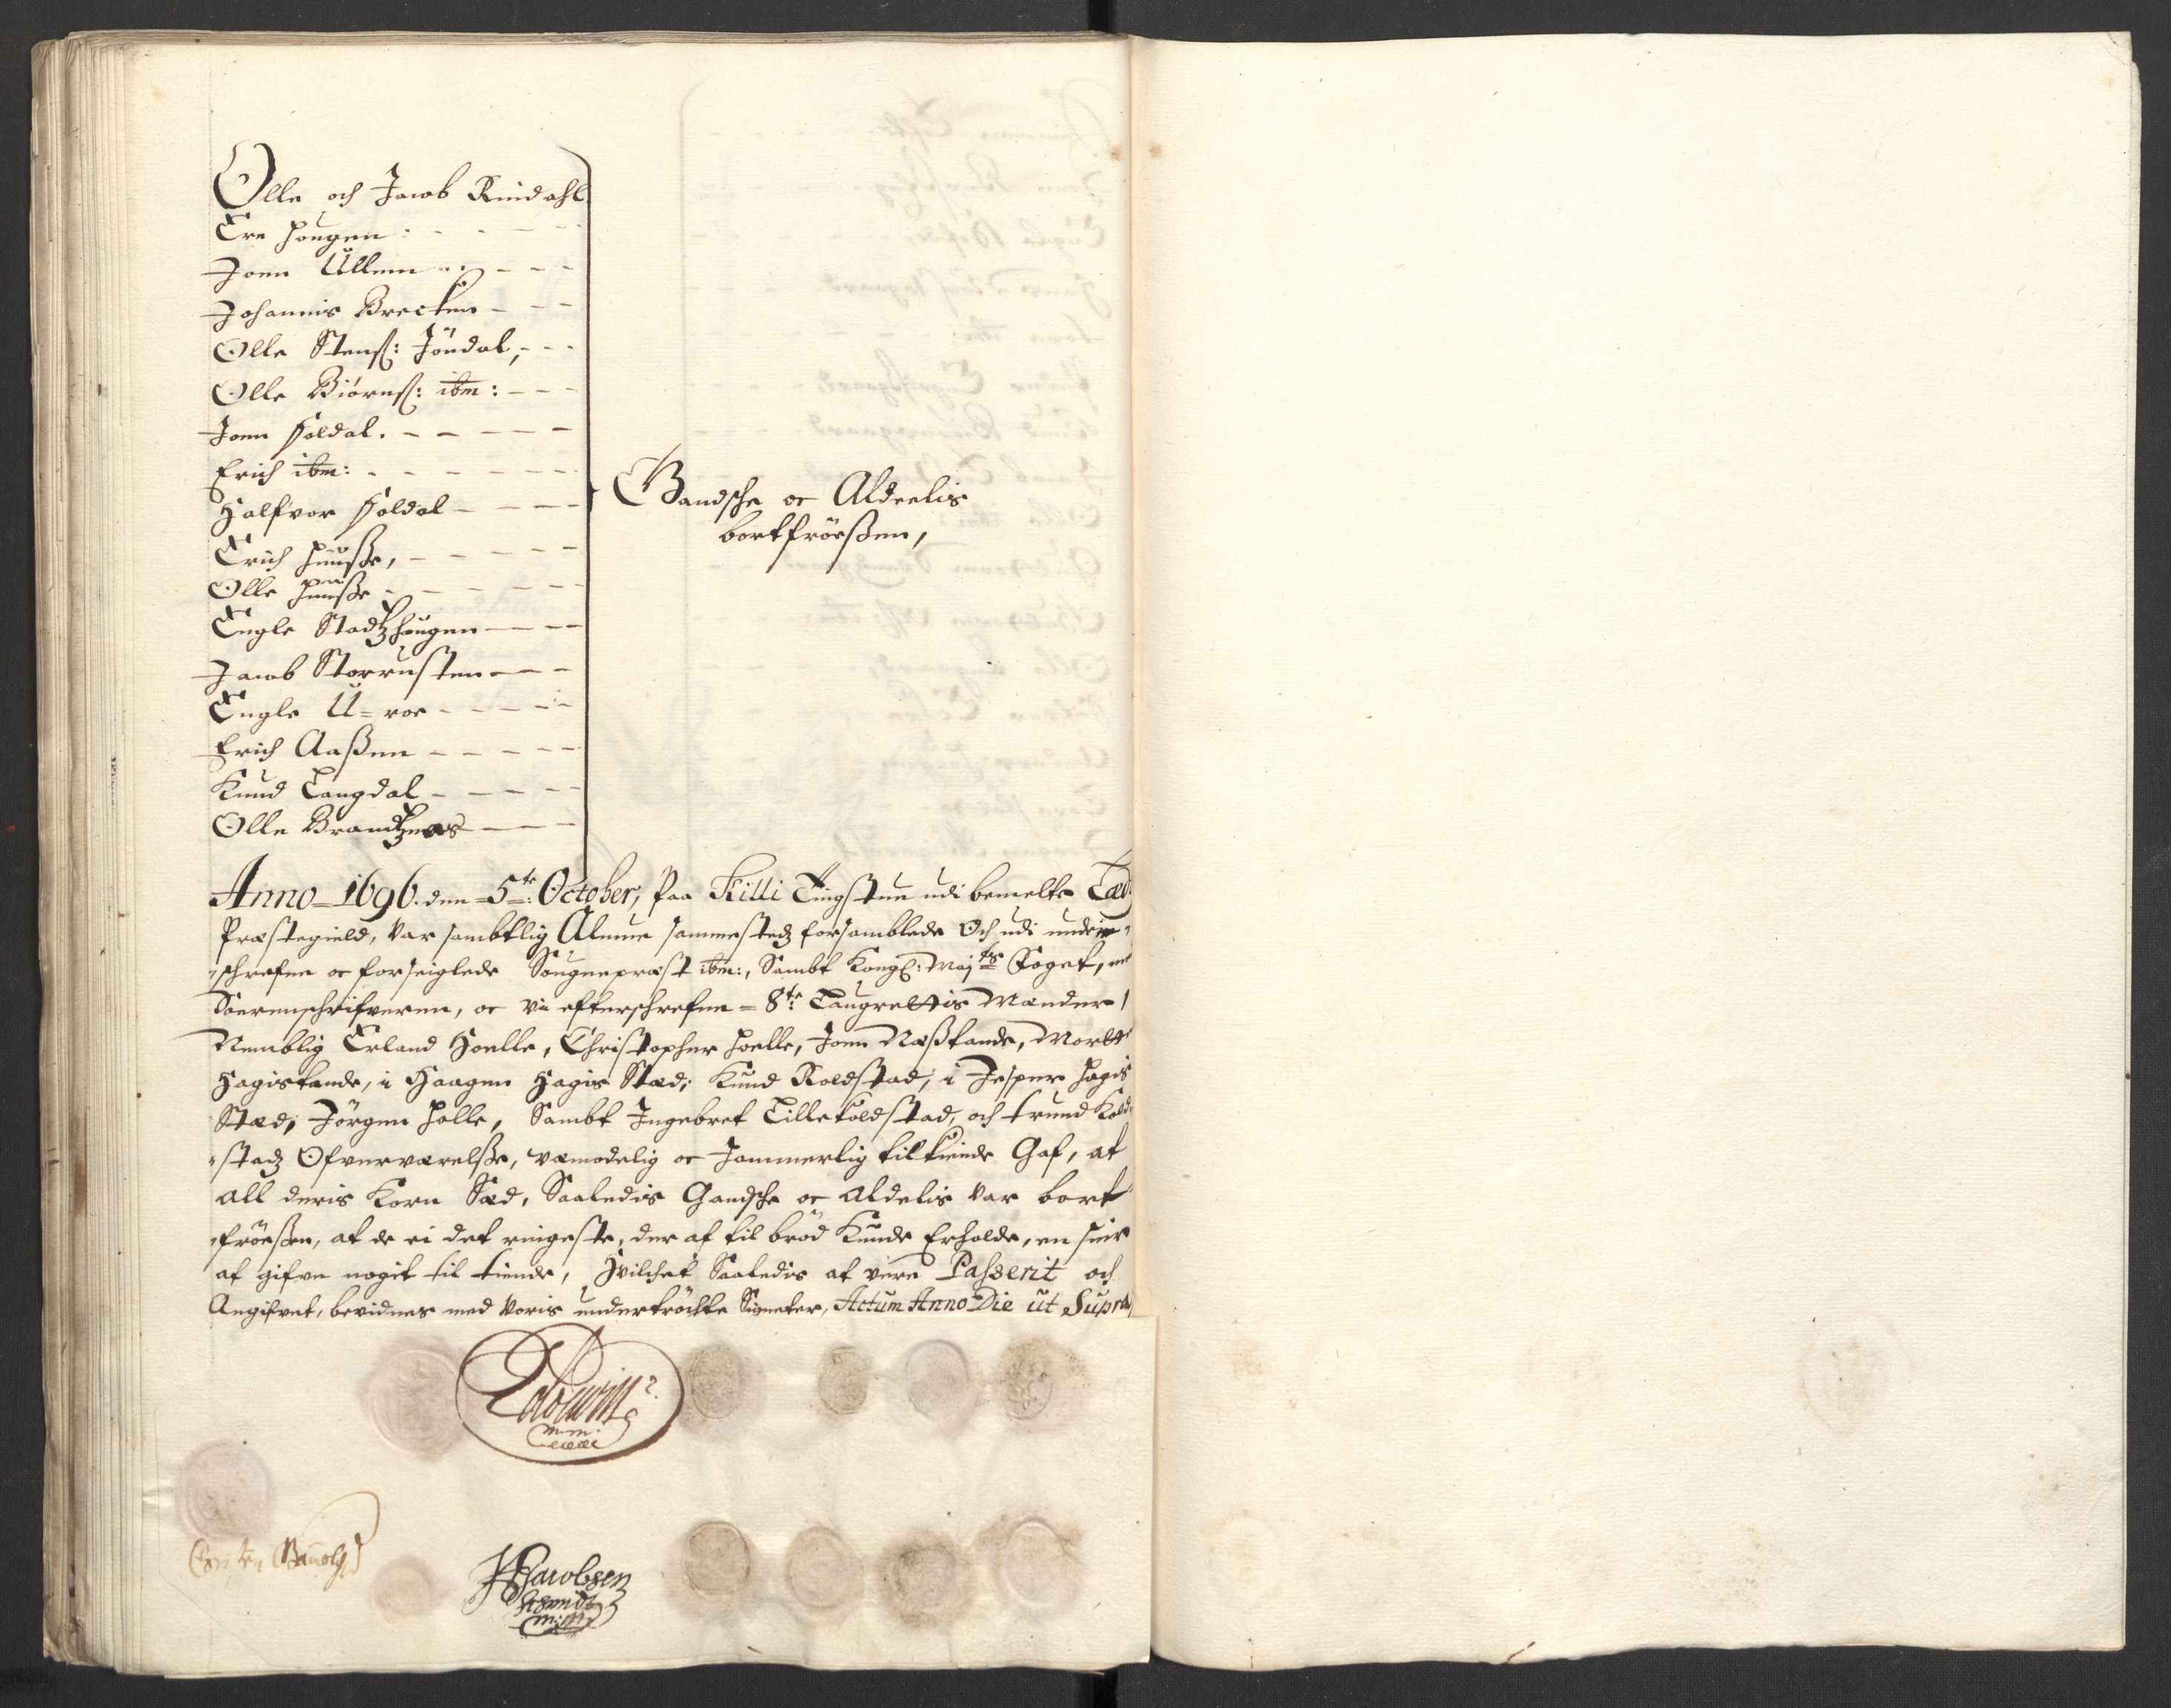 Olle och Jacob Rindahl
Tre Hougen: - - - -
Joen Ullem - - - -
Johannis Brecken - - -
Olle Stens: Jöndal, - - -
Olle Biörns: ibm: - - -
Joen Holdal. - - - - -
Erich ibm: - - - - - -
Halfvor Holdal - - - -
Erich Huuse, - - - - -
Olle Huuse - - - - -
Engle Stadtzhougen - - - -
Jacob Storrusten - - -
Engle U=roe - - - - -
Erich Aaßen - - - - -
Knud Langdal - - - - -
Olle Brandtznes - - -
Gandsche oc Aldeelis
bortfröesßen,
Anno 1696. den 5te: October, Paa Killi Tingstue udi bemelte
Præstegield, var sambtlig Almue sammestedz forsamblede Och udi under¬
schrefne oc forseiglede Sougnepræst ibm:, Sambt Kongl: Majts Foget,
Soerenschrifveren, oc vii efterschrefne 8te: Laugrettis Mænder
Nemblig Erland Hoelle, Christopher Hoelle, Joen Næsßtande,
Hagistande, i Haagen Hagis Stæd; Knud Koldstad, i Jesper Hagis
Stæd, Jörgen Holle, Sambt Ingebret Lillekoldstad, och Trund Kold¬
stadz Ofverværelße, væmodelig oc Jammerlig tilkiende Gaf, at
all deris Korn Sæd, Saaledis Gandsche oc aldelis var bort¬
fröeßen, at de ei det ringeste, der af til bröd Kunde Erholde, en sier
at gifve nogit til tiende, Hvilchet Saaledis at vere Passerit och
Angifvet, bevidnes med voris undertröchte Signeter, Actum Anno Die ut Supra
m.m.
Jacobsen
m:m